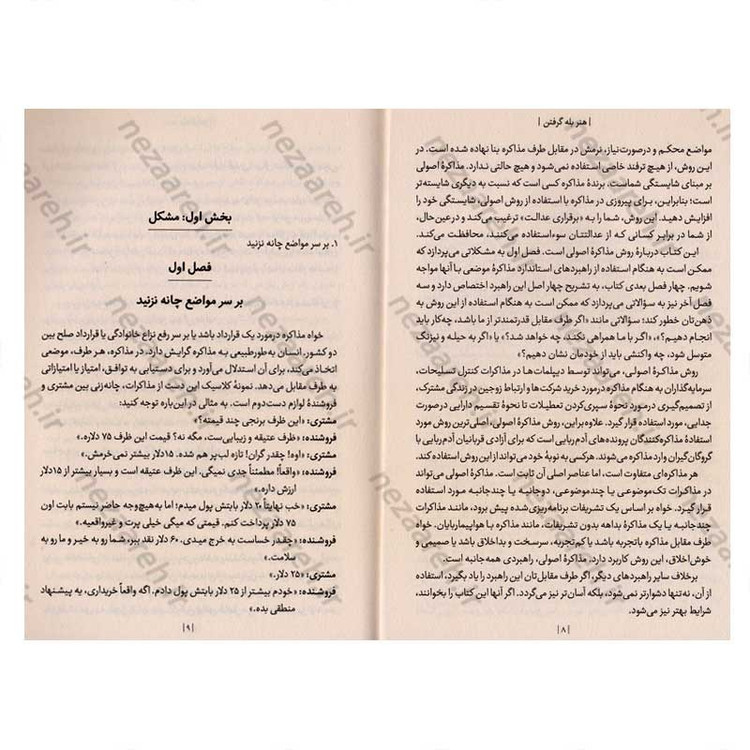 | هنر بله گرفتن |
مواضع محکم و درصورت‌نیاز، نرمش در مقابل طرف مذاکره بنا نهاده شده است. در
این روش، از هیچ ترفند خاصی استفاده نمی‌شود و هیچ حالتی ندارد. مذاکرهٔ اصولی
بر مبنای شایستگی شماست. برندهٔ مذاکره کسی است که نسبت به دیگری شایسته‌تر
است؛ بنابراین، برای پیروزی در مذاکره با استفاده از روش اصولی، شایستگی خود را
افزایش دهید. این روش، شما را به «برقراری عدالت» ترغیب می‌کند و در عین‌حال،
از شما در برابر کسانی که از عدالتتان سوءاستفاده می‌کنند، محافظت می‌کند.
این کتاب دربارهٔ روش مذاکرهٔ اصولی است. فصل اول به مشکلاتی می‌پردازد که
ممکن است به هنگام استفاده از راهبردهای استاندارد مذاکرهٔ موضعی با آنها مواجه
شویم. چهار فصل بعدی کتاب، به تشریح چهار اصل این راهبرد اختصاص دارد و سه
فصل آخر نیز به سؤالاتی می‌پردازد که ممکن است به هنگام استفاده از این روش به
ذهن‌تان خطور کند؛ سؤالاتی مانند «اگر طرف مقابل قدرتمندتر از ما باشد، چه‌کار باید
انجام دهیم؟»، «اگر با ما همراهی نکند، چه خواهد شد؟» یا «اگر به حیله و نیرنگ
متوسل شود، چه واکنشی باید از خودمان نشان دهیم؟»
روش مذاکرهٔ اصولی، می‌تواند توسط دیپلمات‌ها در مذاکرات کنترل تسلیحات،
سرمایه‌گذاران به هنگام مذاکره درمورد خرید شرکت‌ها و ارتباط زوجین در زندگی مشترک،
از تصمیم‌گیری درمورد نحوهٔ سپری‌کردن تعطیلات تا نحوهٔ تقسیم دارایی درصورت
جدایی، مورد استفاده قرار گیرد. علاوه‌براین، روش مذاکرهٔ اصولی، اصلی‌ترین روش مورد
استفادهٔ مذاکره‌کنندگان پرونده‌های آدم‌ربایی است که برای آزادی قربانیان آدم‌ربایی با
گروگان‌گیران وارد مذاکره می‌شوند. هرکسی به نوبهٔ خود می‌تواند از این روش استفاده کند.
هر مذاکره‌ای متفاوت است، اما عناصر اصلی آن ثابت است. مذاکرهٔ اصولی می‌تواند
در مذاکرات تک‌موضوعی یا چندموضوعی، دوجانبه یا چندجانبه مورد استفاده
قرار گیرد. خواه بر اساس یک تشریفات برنامه‌ریزی‌شده پیش برود، مانند مذاکرات
چندجانبه یا یک مذاکرهٔ بداهه بدون تشریفات، مانند مذاکره با هواپیماربایان. خواه
طرف مقابل مذاکره باتجربه باشد یا کم‌تجربه، سرسخت و بداخلاق باشد یا صمیمی و
خوش‌اخلاق، این روش کاربرد دارد. مذاکرهٔ اصولی، راهبردی همه‌جانبه است.
برخلاف سایر راهبردهای دیگر، اگر طرف مقابل‌تان این راهبرد را یاد بگیرد، استفاده
از آن، نه‌تنها دشوارتر نمی‌شود، بلکه آسان‌تر نیز می‌گردد. اگر آنها این کتاب را بخوانند،
شرایط بهتر نیز می‌شود.
| ۸ |
بخش اول: مشکل
۱. بر سر مواضع چانه نزنید
فصل اول
بر سر مواضع چانه نزنید
خواه مذاکره درمورد یک قرارداد باشد یا بر سر رفع نزاع خانوادگی یا قرارداد صلح بین
دو کشور. انسان به‌طورطبیعی به مذاکره گرایش دارد. در مذاکره، هر طرف، موضعی
اتخاذ می‌کند، برای آن استدلال می‌آورد و برای دستیابی به توافق، امتیاز یا امتیازاتی
به طرف مقابل می‌دهد. نمونهٔ کلاسیک این دست از مذاکرات، چانه‌زنی بین مشتری و
فروشندهٔ لوازم دست‌دوم است. به مثالی در این‌باره توجه کنید:
مشتری: «این ظرف برنجی چند قیمته؟»
فروشنده: «ظرف عتیقه و زیبایی‌ست، مگه نه؟ قیمت این ظرف ۷۵ دلاره.»
مشتری: «اوه! چقدر گران! تازه لب‌پر هم شده. ۱۵دلار بیشتر نمی‌خرمش.»
فروشنده: «واقعاً! مطمئناً جدی نمیگی. این ظرف عتیقه است و بسیار بیشتر از ۱۵دلار
ارزش داره.»
مشتری: «خب نهایتاً ۲۰ دلار بابتش پول میدم؛ اما به‌هیچ‌وجه حاضر نیستم بابت اون
۷۵ دلار پرداخت کنم. قیمتی که میگی خیلی پرت و غیرواقعیه.»
فروشنده: «چقدر خساست به خرج میدی. ۶۰ دلار نقد ببر، شما رو به خیر و ما رو به
سلامت.»
مشتری: «۲۵ دلار.»
فروشنده: «خودم بیشتر از ۲۵ دلار بابتش پول دادم. اگه واقعاً خریداری، یه پیشنهاد
منطقی بده.»
| ۹ |
nezaareh.ir
nezaareh.ir
nezaareh.ir
nezaareh.ir
nezaareh.ir
nezaareh.ir